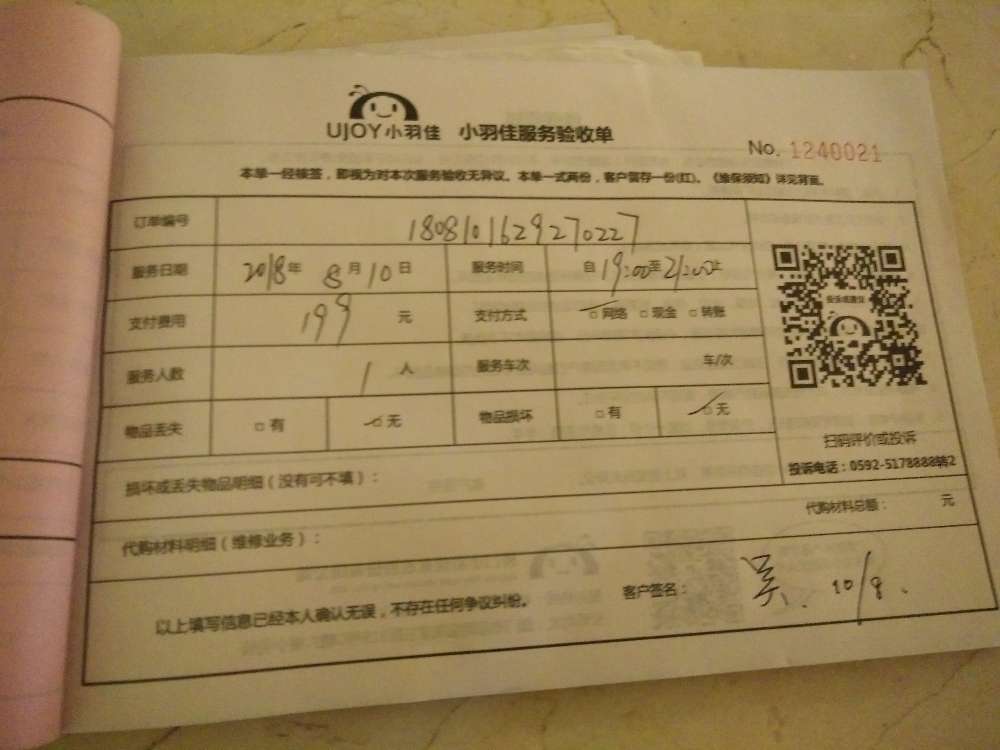 UJOY小羽佳 小羽佳服务验收单
No. 1240021
本单一经核签，即视为对本次服务验收无异议。本单一式两份，客户留存一份(红)。《维保须知》详见背面。
订单编号 180810162927022​7
服务日期 2018年 8月10日 服务时间 自19:00至21:00止
支付费用 199 元 支付方式 □网络 □现金 □转账
服务人数 1 人 服务车次 车/次
物品丢失 □有 □无 物品损坏 □有 □无
投诉或建议
扫码评价或投诉
投诉电话：0592-5178888转2
损坏或丢失物品明细（没有可不填）：
代购材料明细（维修业务）： 代购材料总额： 元
以上填写信息已经本人确认无误，不存在任何争议纠纷。 客户签名： 吴 10/8